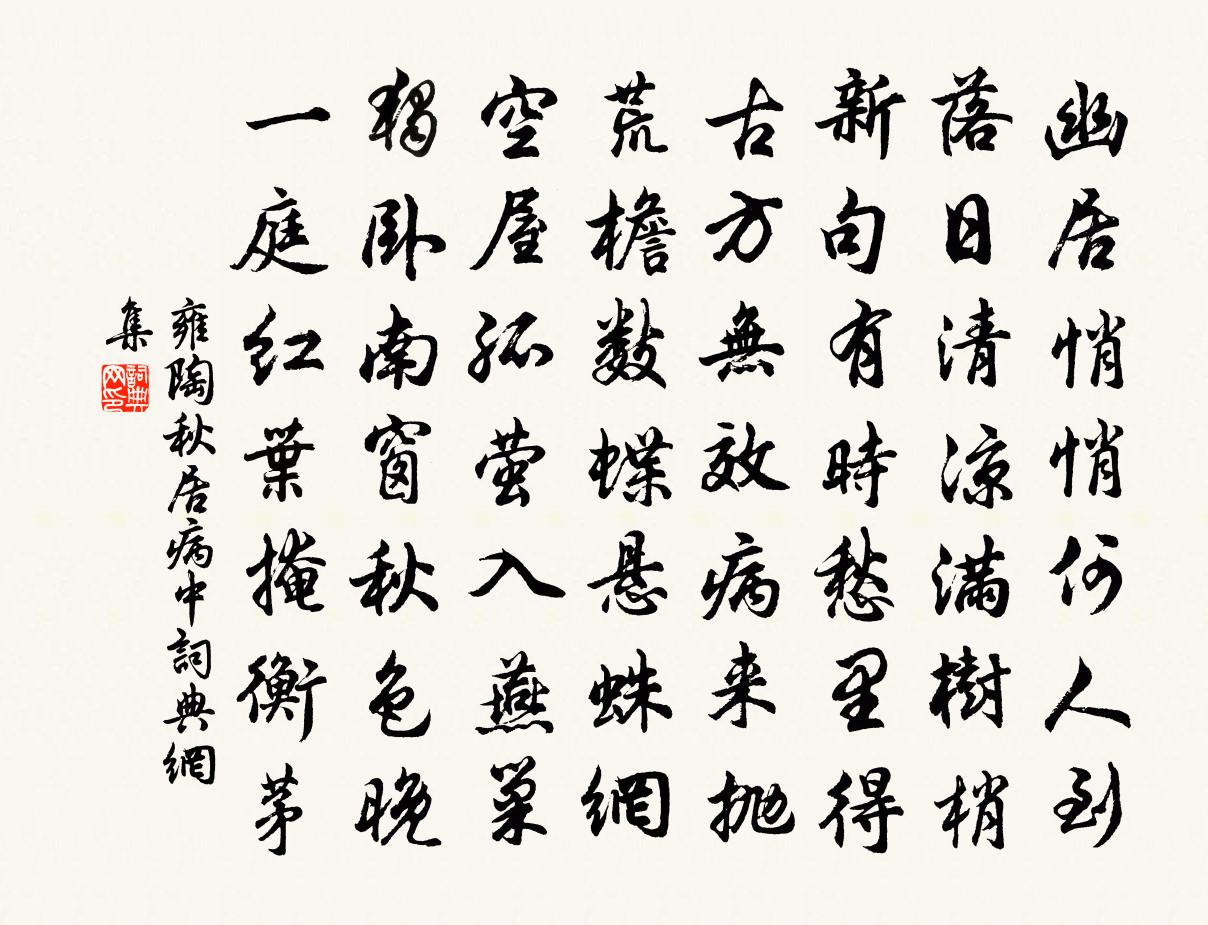 幽居悄悄何人到
落日清涼滿樹梢
新句有時愁里得
古方無效病来抛
荒檐數蝶悬蛛網
空屋孤萤入燕巢
獨卧南窗秋色晚
一庭紅葉掩衡茅
雍陶秋居病中詞典網
集
詞典
网印